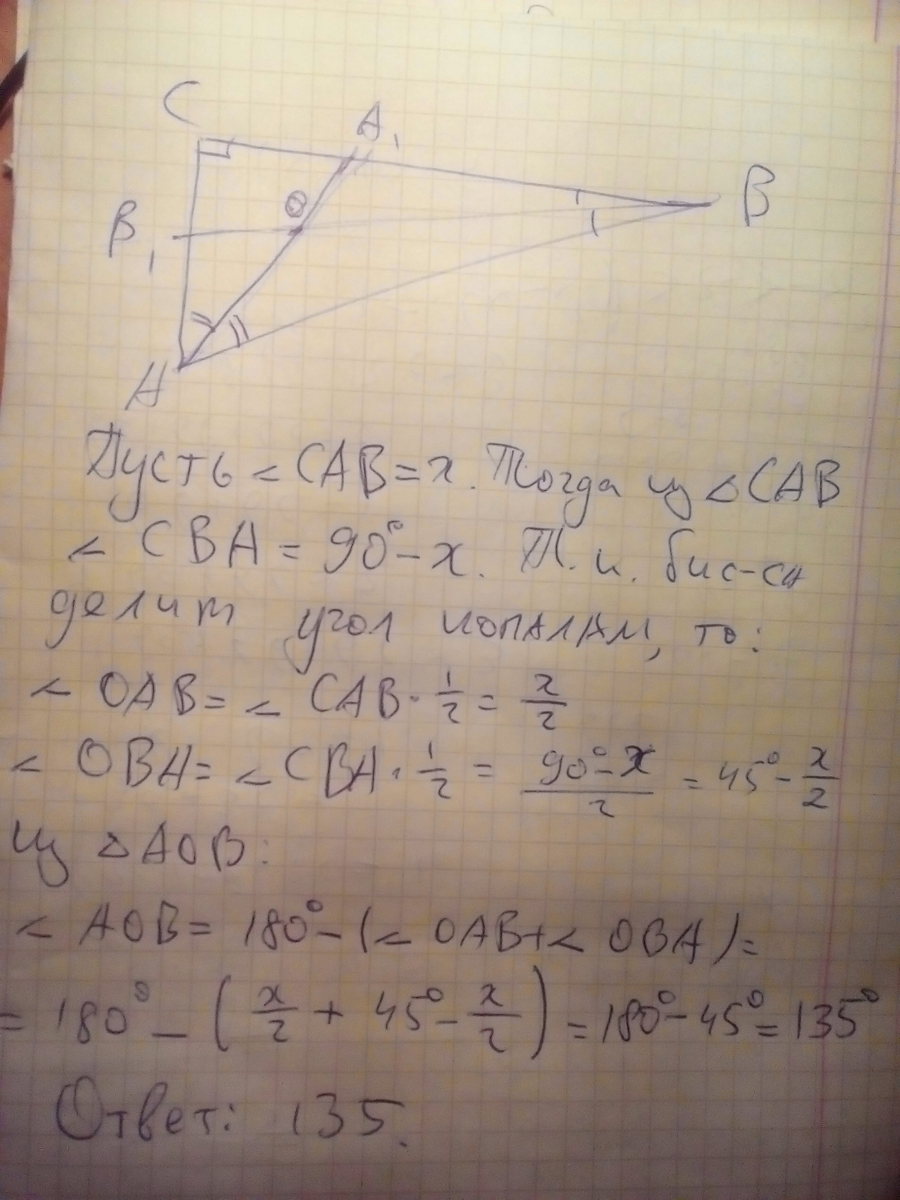 C
A₁
O
B₁
B
A
Пусть < CAB = x. Тогда из △CAB
< CBA = 90° - x. Т.к. бис-са
делит угол пополам, то:
< OAB = < CAB · 1/2 = x/2
< OBA = < CBA · 1/2 = (90° - x)/2 = 45° - x/2
Из △AOB:
< AOB = 180° - (< OAB + < OBA) =
= 180° - (x/2 + 45° - x/2) = 180° - 45° = 135°
Ответ: 135.